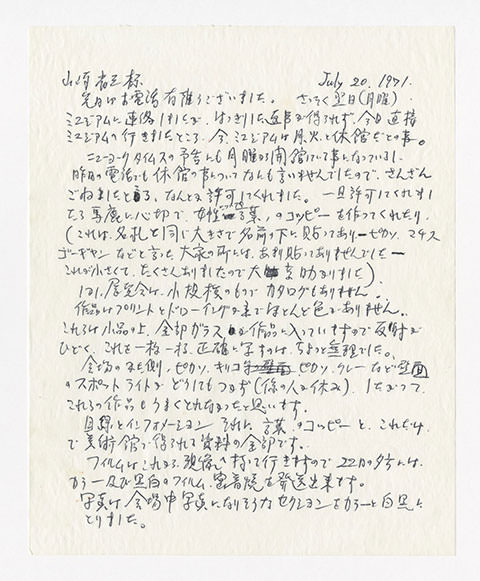 山崎省三様 July 20. 1971.
先日はお電話有難うございました。 さっそく翌日(月曜)
ミュージアムに連絡しましたが、はっきりした返事が得られず、今日直接
ミュージアムへ行きましたところ、今、ミュージアムは月火と休館だとの事。
ニューヨークタイムスの予告にも月曜から開館していて事になっているし
昨日の電話でも休館の事についてなんにも言いませんでしたので、さんざん
ごねましたところ、なんとか許可してくれました。 一旦許可してくれまし
たら馬鹿に心切で、女性 言葉、のコッピーを作ってくれたり、
(これは、名札と同じ大きさで名前の下に貼ってあり、ーピカソ、マチス
ゴーギャン などと言った大家の所には、あまり貼ってありませんでしたー
これが小さくて、たくさんありましたので大変助かりました)
展覧会は、小規模のもので カタログもありません。
作品はプリントとドローイングが主でほとんど色がありません。
これらは小品の上、全部ガラス 作品に入っていますので反射が
ひどく、これを一枚一枚、正確に写すのは、ちょっと無理でした。
会場の 側、ピカソ、キリコ ピカソ、クレー など
のスポットライトがどうしてもつかず(係の人が休み)、したがって
これらの作品もうまくとれなかったと思います。
目録とインフォメーション それに 言葉、のコッピーと、これだけ
で美術館で得られた資料の全部です。
フィルムはこれから現像に持って行きますので22日の夕方には
カラー及び黒白のフィルム、密着焼を発送出来ます。
写真は会場中写真になりそうなセクションをカラーと白黒に
とりました。